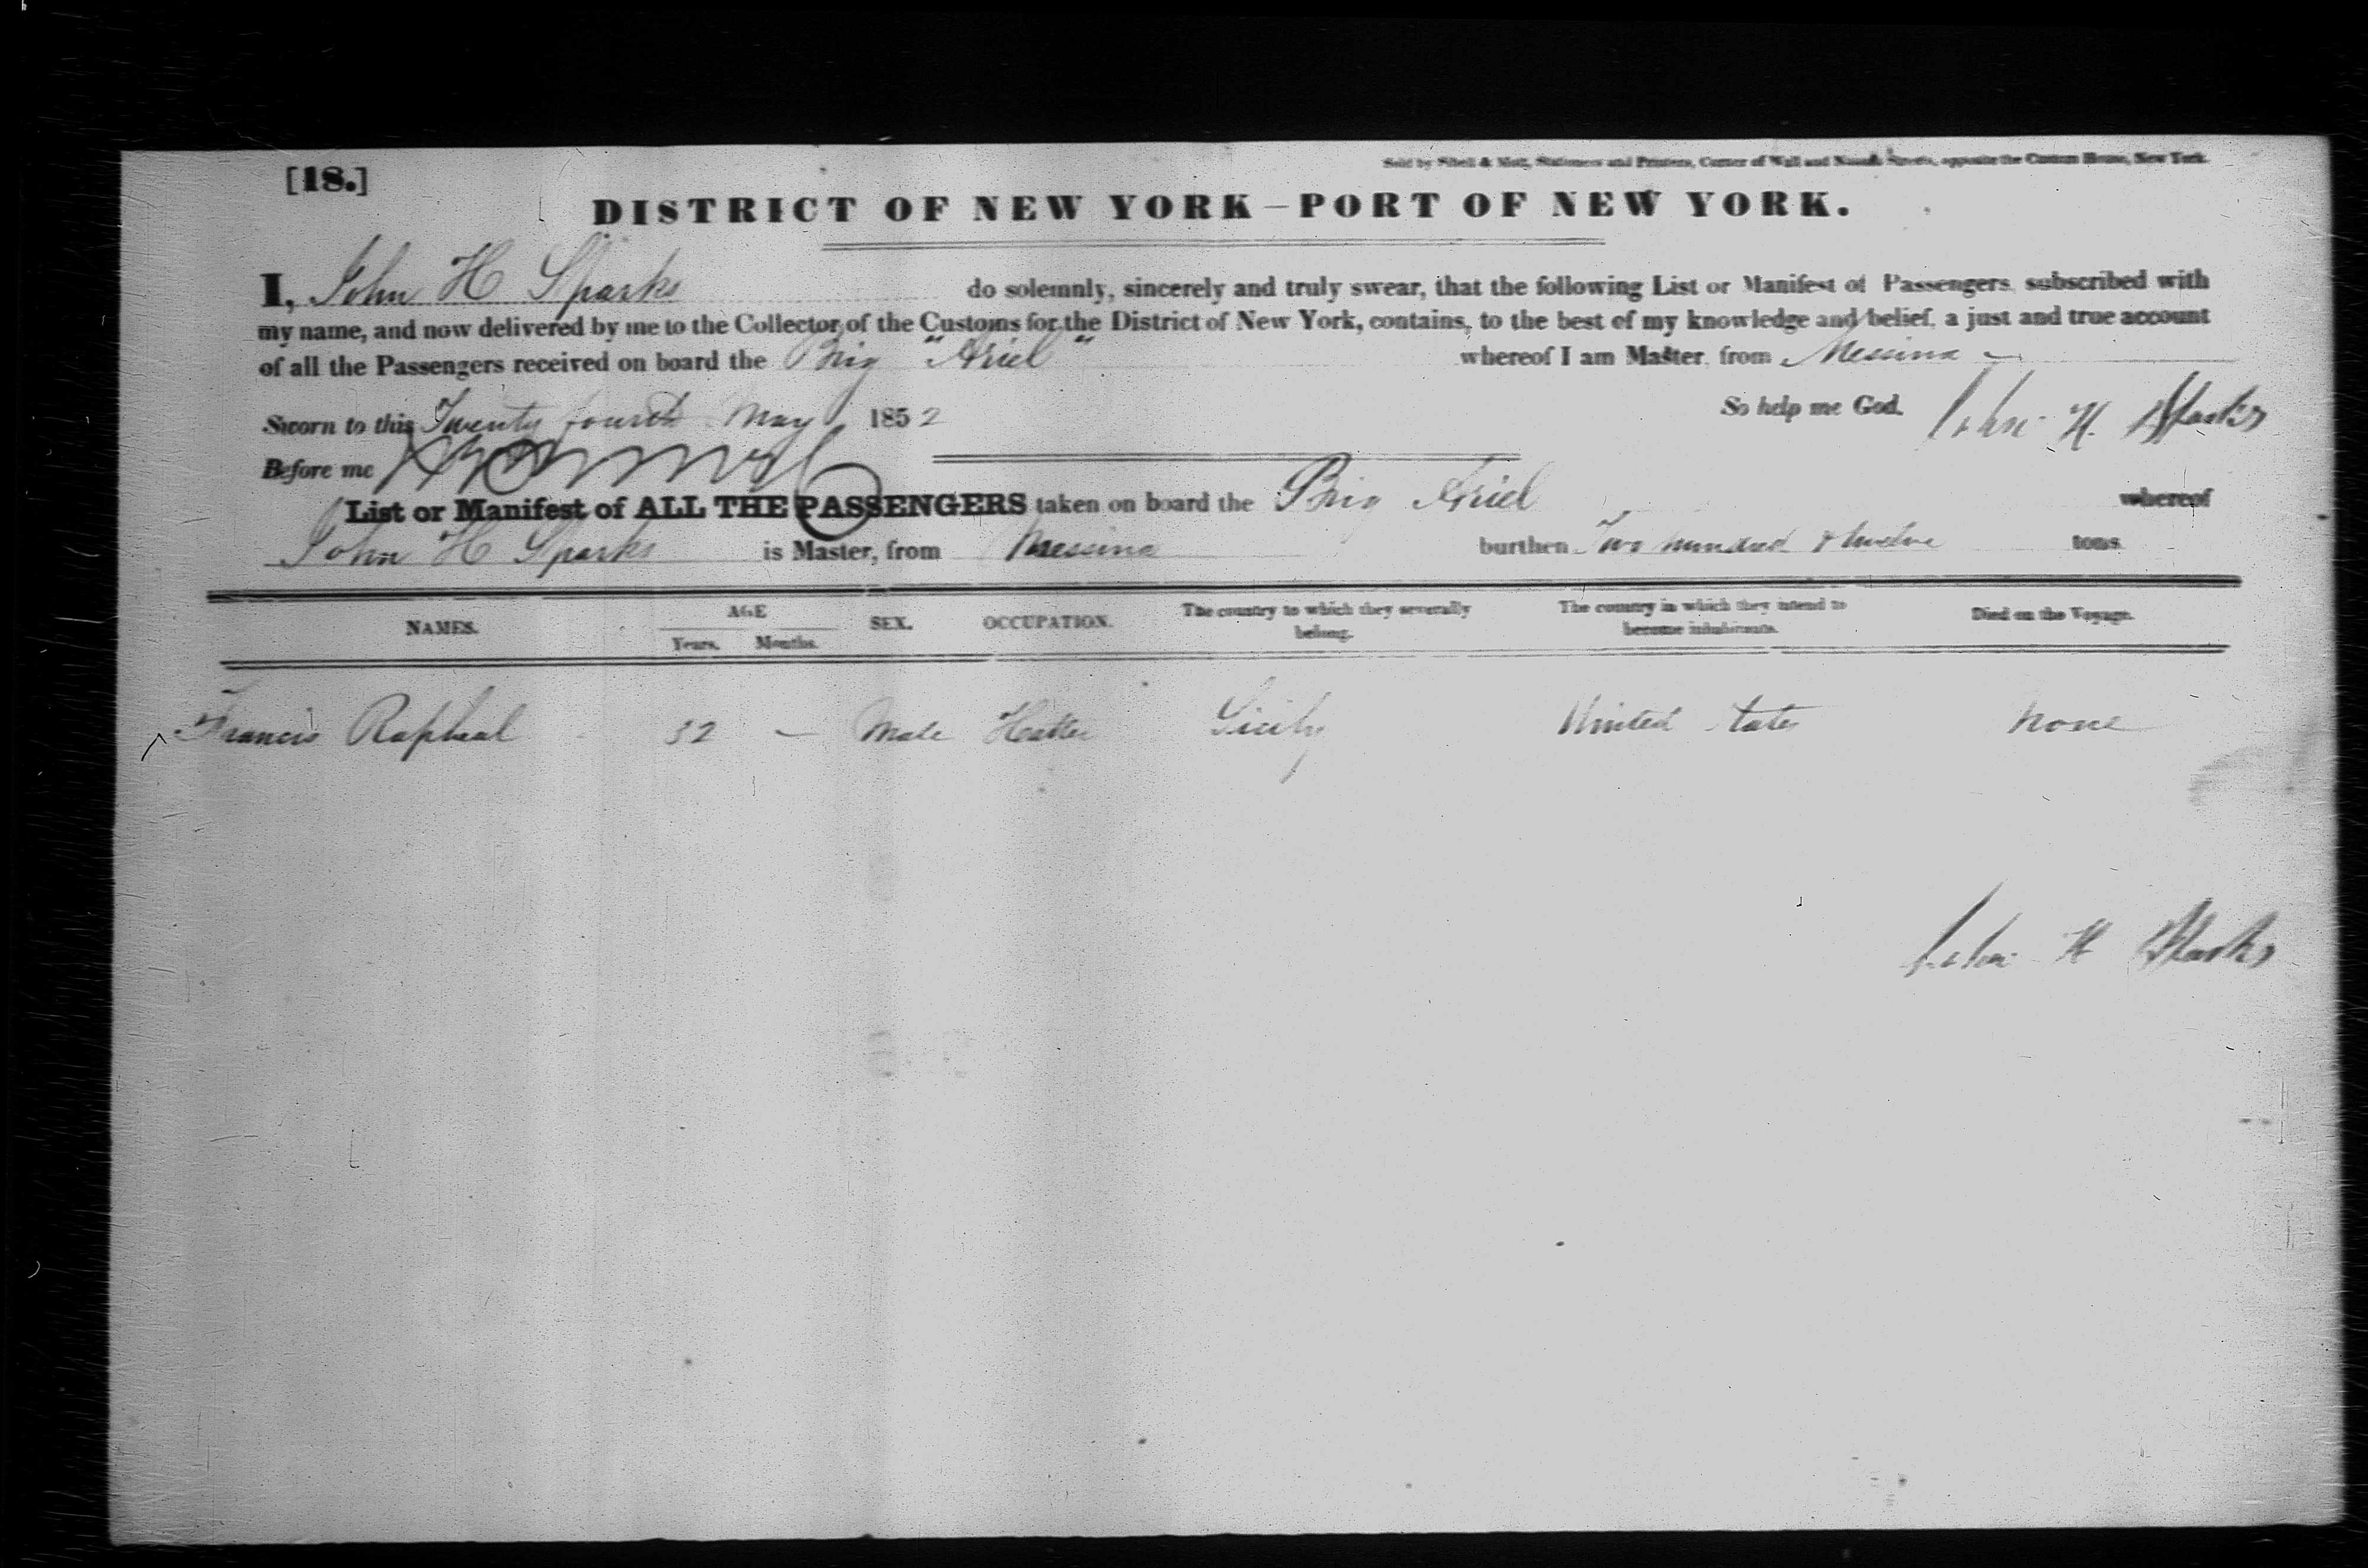 [18.]
Sold by Sibell & Mott, Stationers and Printers, Corner of Wall and Nassau Streets, opposite the Custom House, New York.
DISTRICT OF NEW YORK—PORT OF NEW YORK.
I, John H Sparks do solemnly, sincerely and truly swear, that the following List or Manifest of Passengers, subscribed with
my name, and now delivered by me to the Collector of the Customs for the District of New York, contains, to the best of my knowledge and belief, a just and true account
of all the Passengers received on board the Brig "Ariel" whereof I am Master, from Messina
Sworn to this Twenty fourth May 1852 So help me God. John H. Sparks
Before me
List or Manifest of ALL THE PASSENGERS taken on board the Brig Ariel whereof
John H Sparks is Master, from Messina burthen Two hundred & twelve tons
NAMES. AGE SEX. OCCUPATION. The country to which they severally belong. The country in which they intend to become inhabitants. Died on the Voyage.
Years. Months.
Francis Raphael 32 — Male Hatter Sicily United States None
John H Sparks